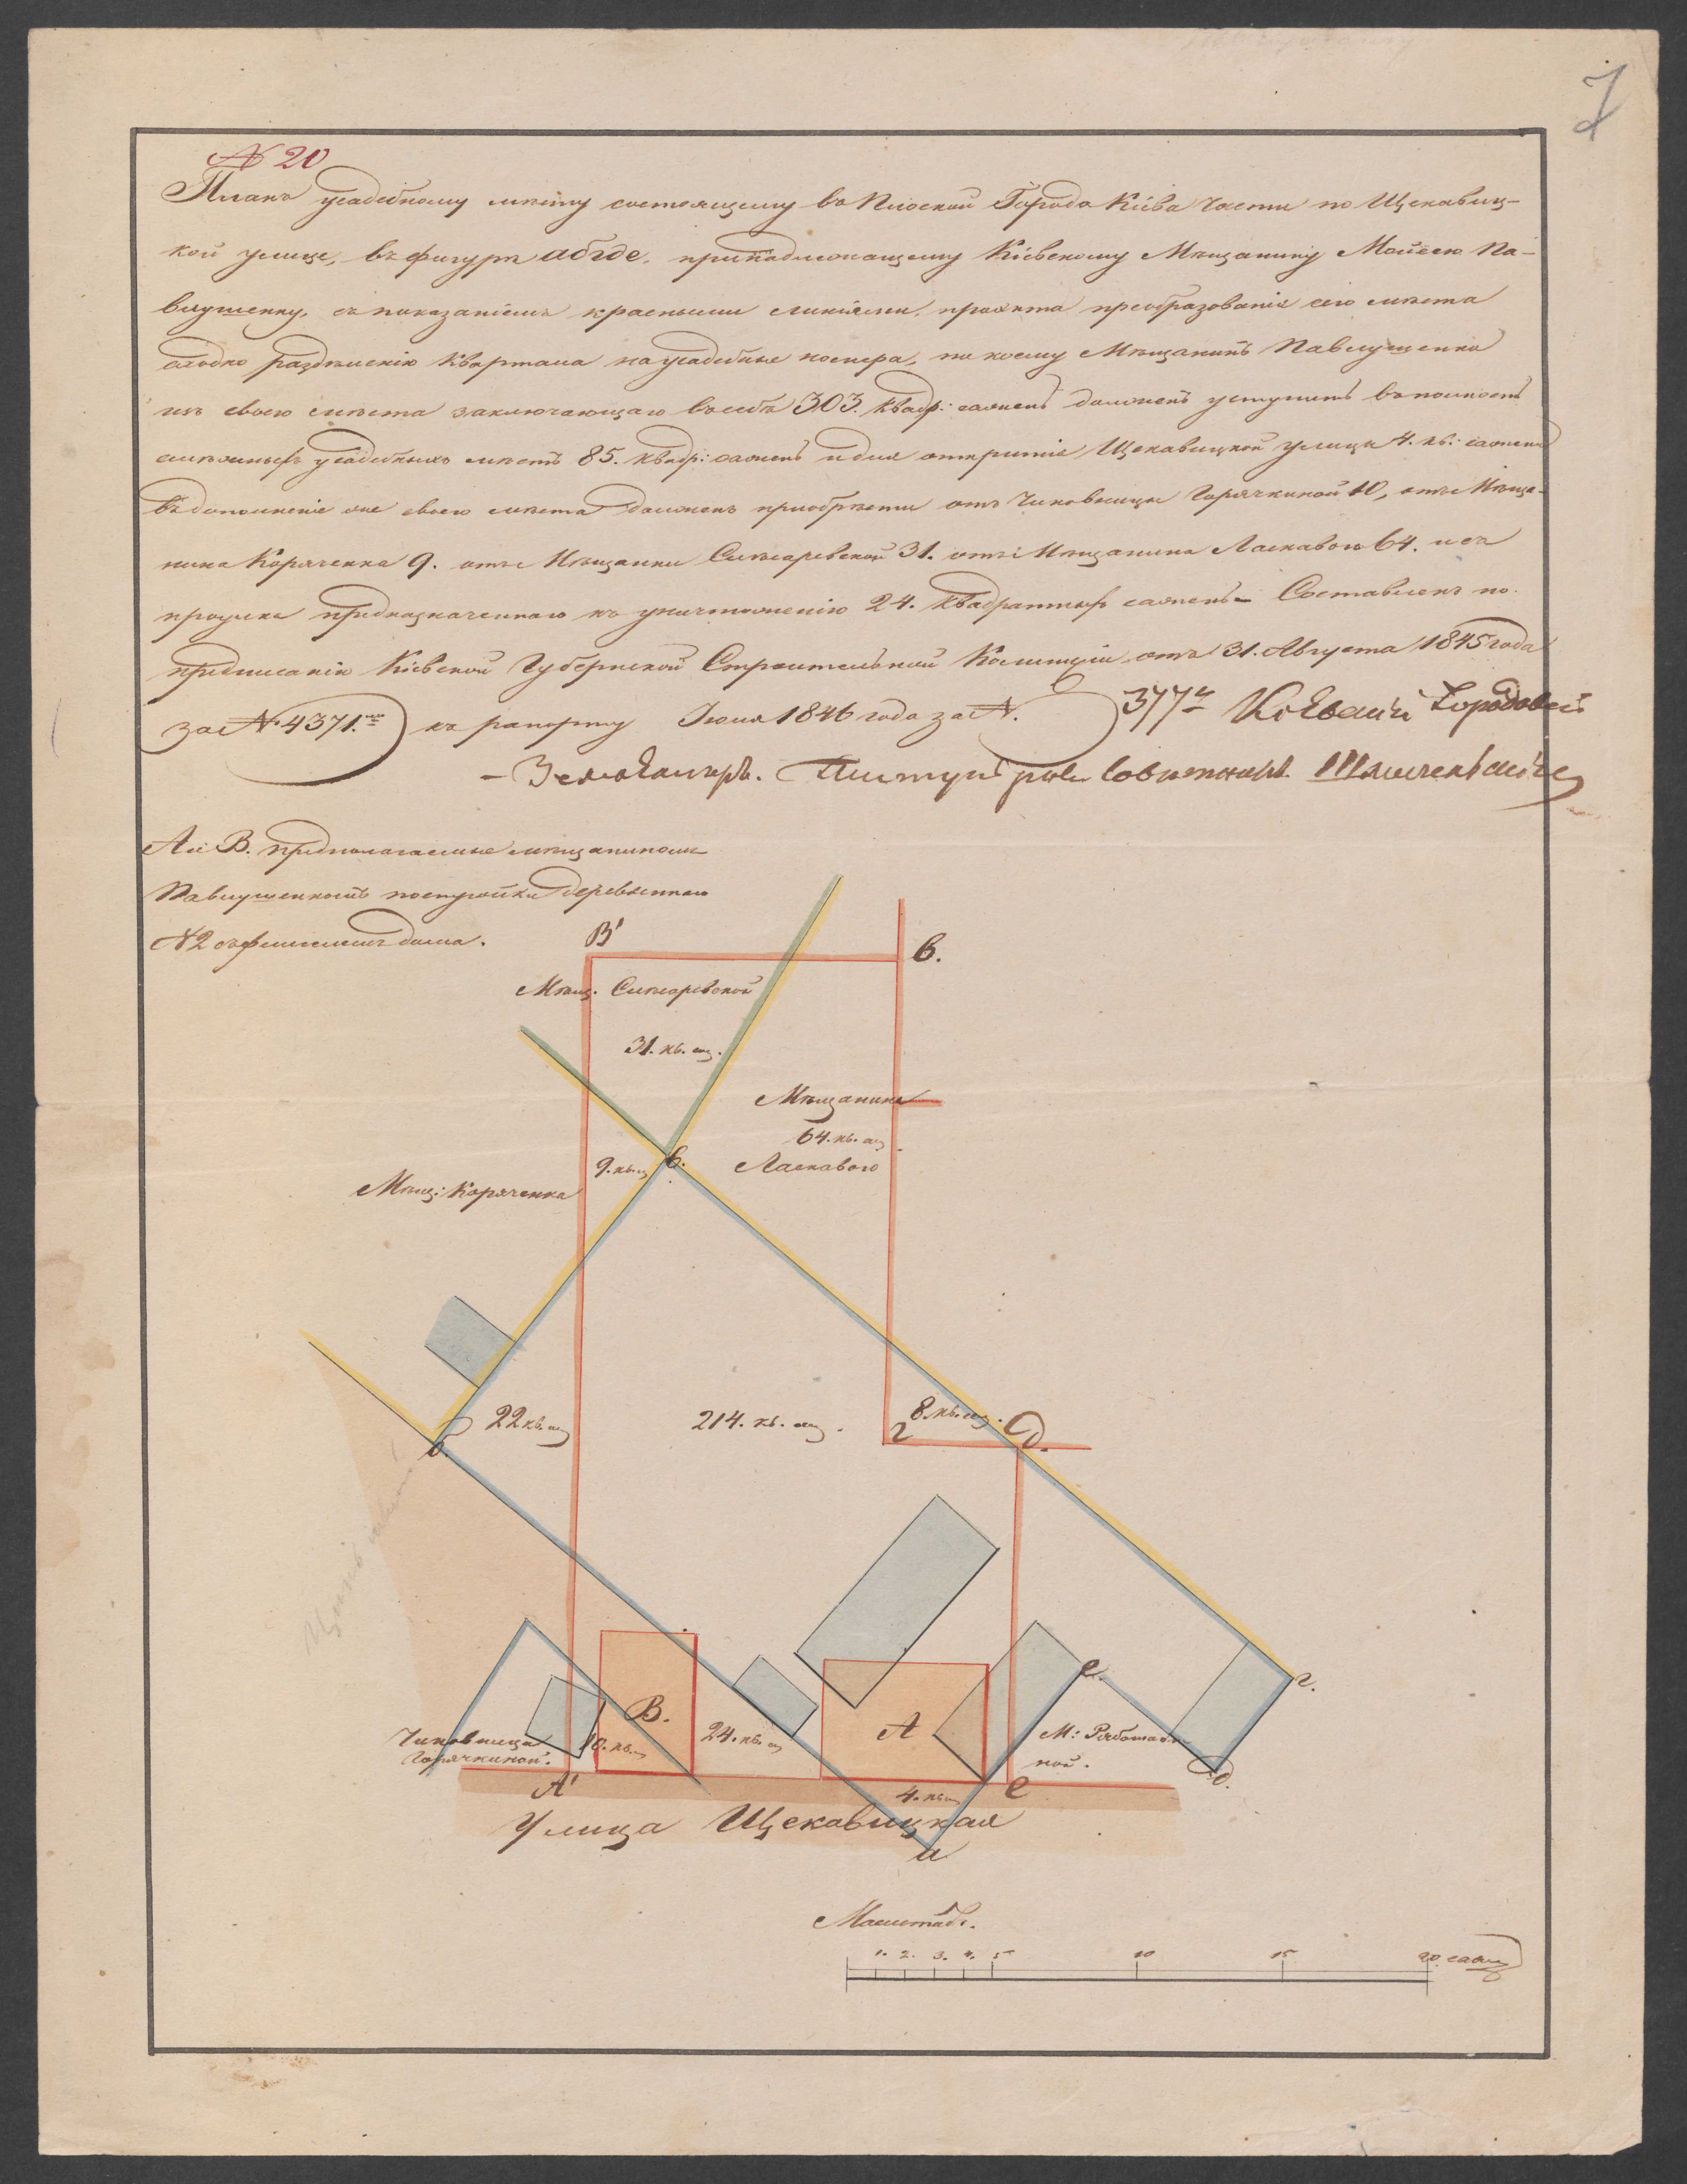 № 20
Планъ усадебному мѣсту состоящему въ Плоской Города Кіева Части по Щекавиц-
кой улицѣ, въ фигурѣ абгде. принадлежащему Кіевскому Мѣщанину Моисею Па-
влушенку, съ показаніемъ красными линіями, проэкта преобразованія сего мѣста
сходно раздѣленію Квартала на усадебные номера, по коему Мѣщанинъ Павлушенко
изъ своего мѣста заключающаго въ себѣ 303. квадр: сажень долженъ уступить въ полность
смежныхъ усадебныхъ мѣстъ 85. квадр: сажень и для открытія Щекавицкой улицы 4. кв: сажени
въ дополненіе же своего мѣста долженъ пріобрѣсти отъ Чиновницы Горячкиной 10, отъ Мѣща-
нина Коряченка 9. отъ Мѣщанки Слюсаревской 31. отъ Мѣщанина Ласкаваго 64. и съ
проулка предназначеннаго къ уничтоженію 24. квадратныхъ сажень – Составленъ по
предписанію Кіевской Губернской Строительной Коммиссіи отъ 31. Августа 1845 года
за № 4371. къ рапорту Іюня 1846 года за №. 377 Кіевскій Городовой
– Землемѣръ. Титулярный Совѣтникъ
А и В. предполагаемые мѣщаниномъ
Павлушенкомъ постройки деревяннаго
№ 2 съ флигелемъ дома.
В' в.
Мѣщ. Слюсаревской
31. кв. саж.
Мѣщанина
64. кв. саж.
Ласкаваго
9. кв. с. в.
Мѣщ: Коряченка
22 кв. саж.
214. кв. саж.
8. кв. саж.
г д.
б.
В.
А
е.
г.
Чиновница
Горячкиной.
10. кв.
24. кв. с.
М:
ной.
д.
А' 4. кв. е
Улица Щекавицкая
а
Масштабъ.
1. 2. 3. 4. 5 10 15 20. саж.